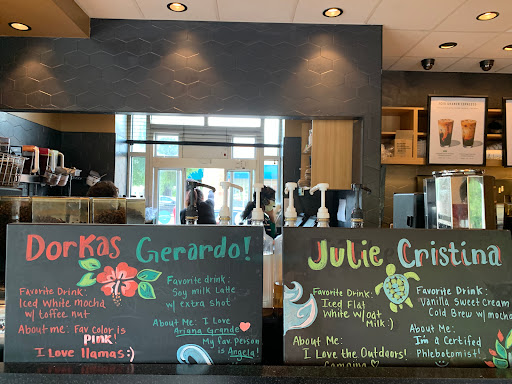 Dorkas
Favorite Drink:
Iced White mocha
w/ toffee nut
About me: Fav color is
PINK!
I Love llamas:)
Gerardo!
Favorite drink:
Soy milk Latte
w/ extra shot
About Me: I Love
Ariana Grande
My fav person
is Angela!
Julie
Favorite Drink:
Iced Flat
White w/oat
Milk:)
About Me:
I Love the Outdoors!
Camping
Cristina
Favorite Drink:
Vanilla Sweet Cream
Cold Brew w/mocha
About Me:
Im a Certifed
Phlebotomist!